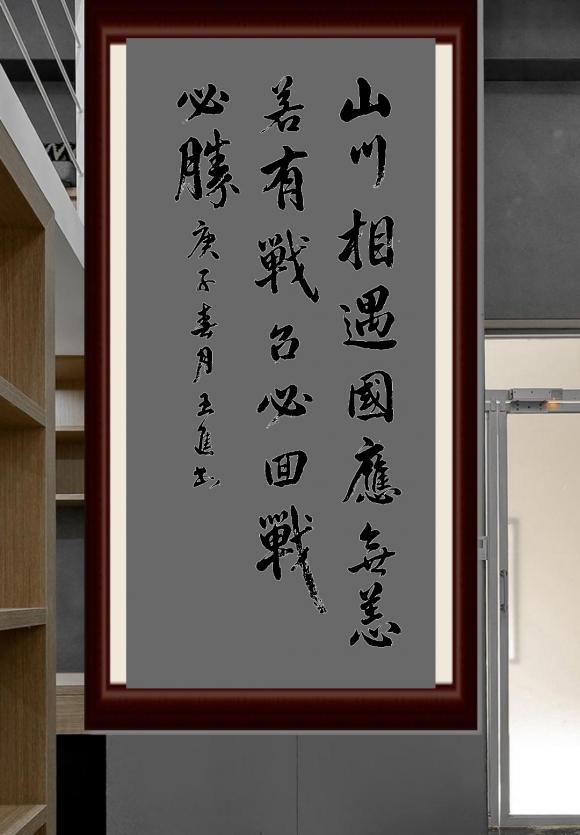 山川相遇國應無恙
若有戰召必回戰
必勝庚子春月王進書